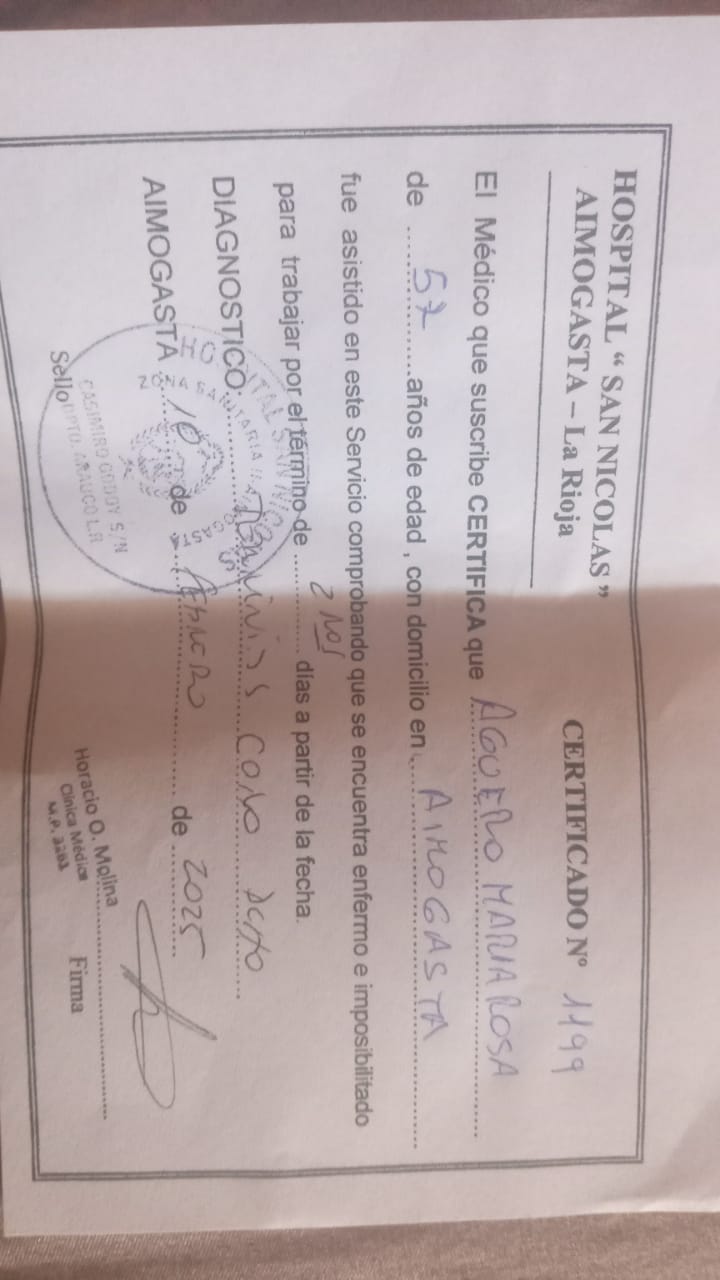 HOSPITAL “ SAN NICOLAS ”
AIMOGASTA – La Rioja
CERTIFICADO Nº 1199
El Médico que suscribe CERTIFICA que AGUERO MARIA ROSA
de 57 años de edad , con domicilio en AIMOGASTA
fue asistido en este Servicio comprobando que se encuentra enfermo e imposibilitado
para trabajar por el término de 2 días a partir de la fecha.
DIAGNOSTICO.
AIMOGASTA 10 de de 2025
Sello
CASIMIRO GODOY S/N
DPTO. ARAUCO L.R
Horacio O. Molina
Clínica Médica
Firma